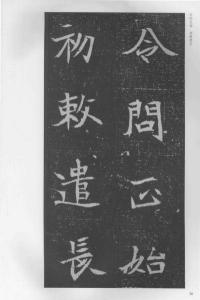 令問正始
初敕遣長